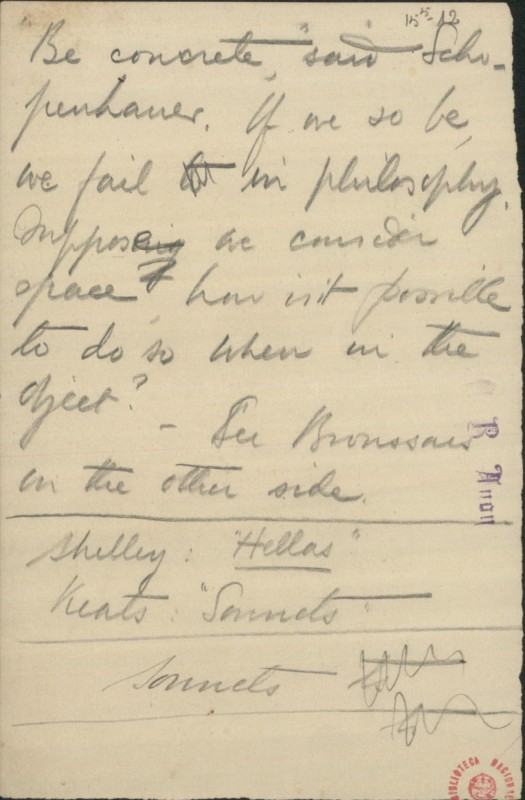 15⁵-12
"Be concrete," said Scho-
penhauer. If we so be,
we fail in philosophy.
Suppose we consider
space, how is it possible
to do so when in the
object?
— See Broussais
on the other side.
Shelley: "Hellas"
Keats: "Sonnets"
Sonnets
R. Anon
BIBLIOTECA NACIONAL